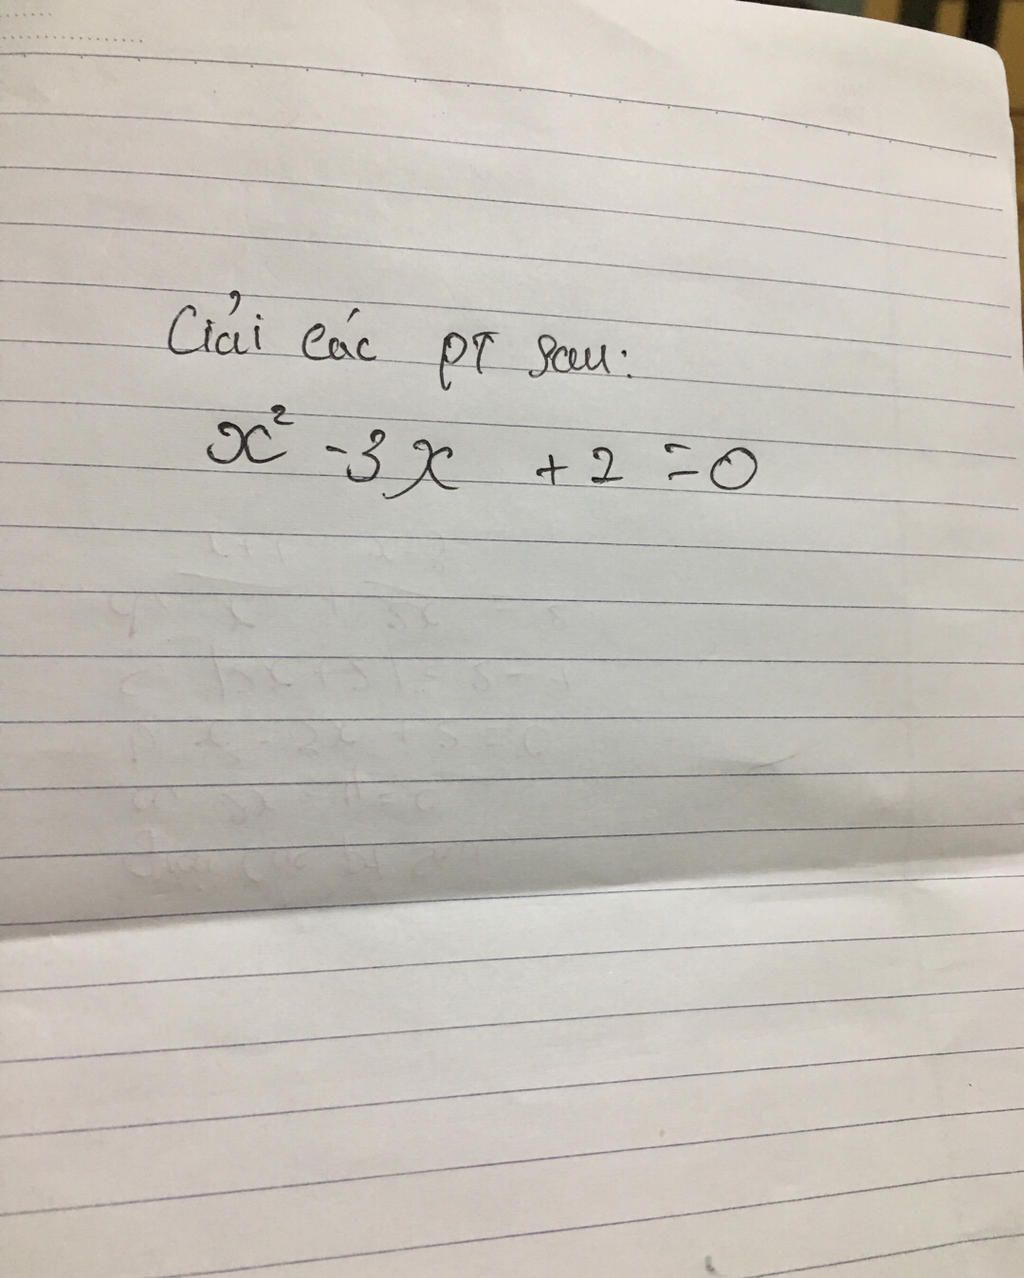 Giải các pT sau:
x² - 3x + 2 = 0